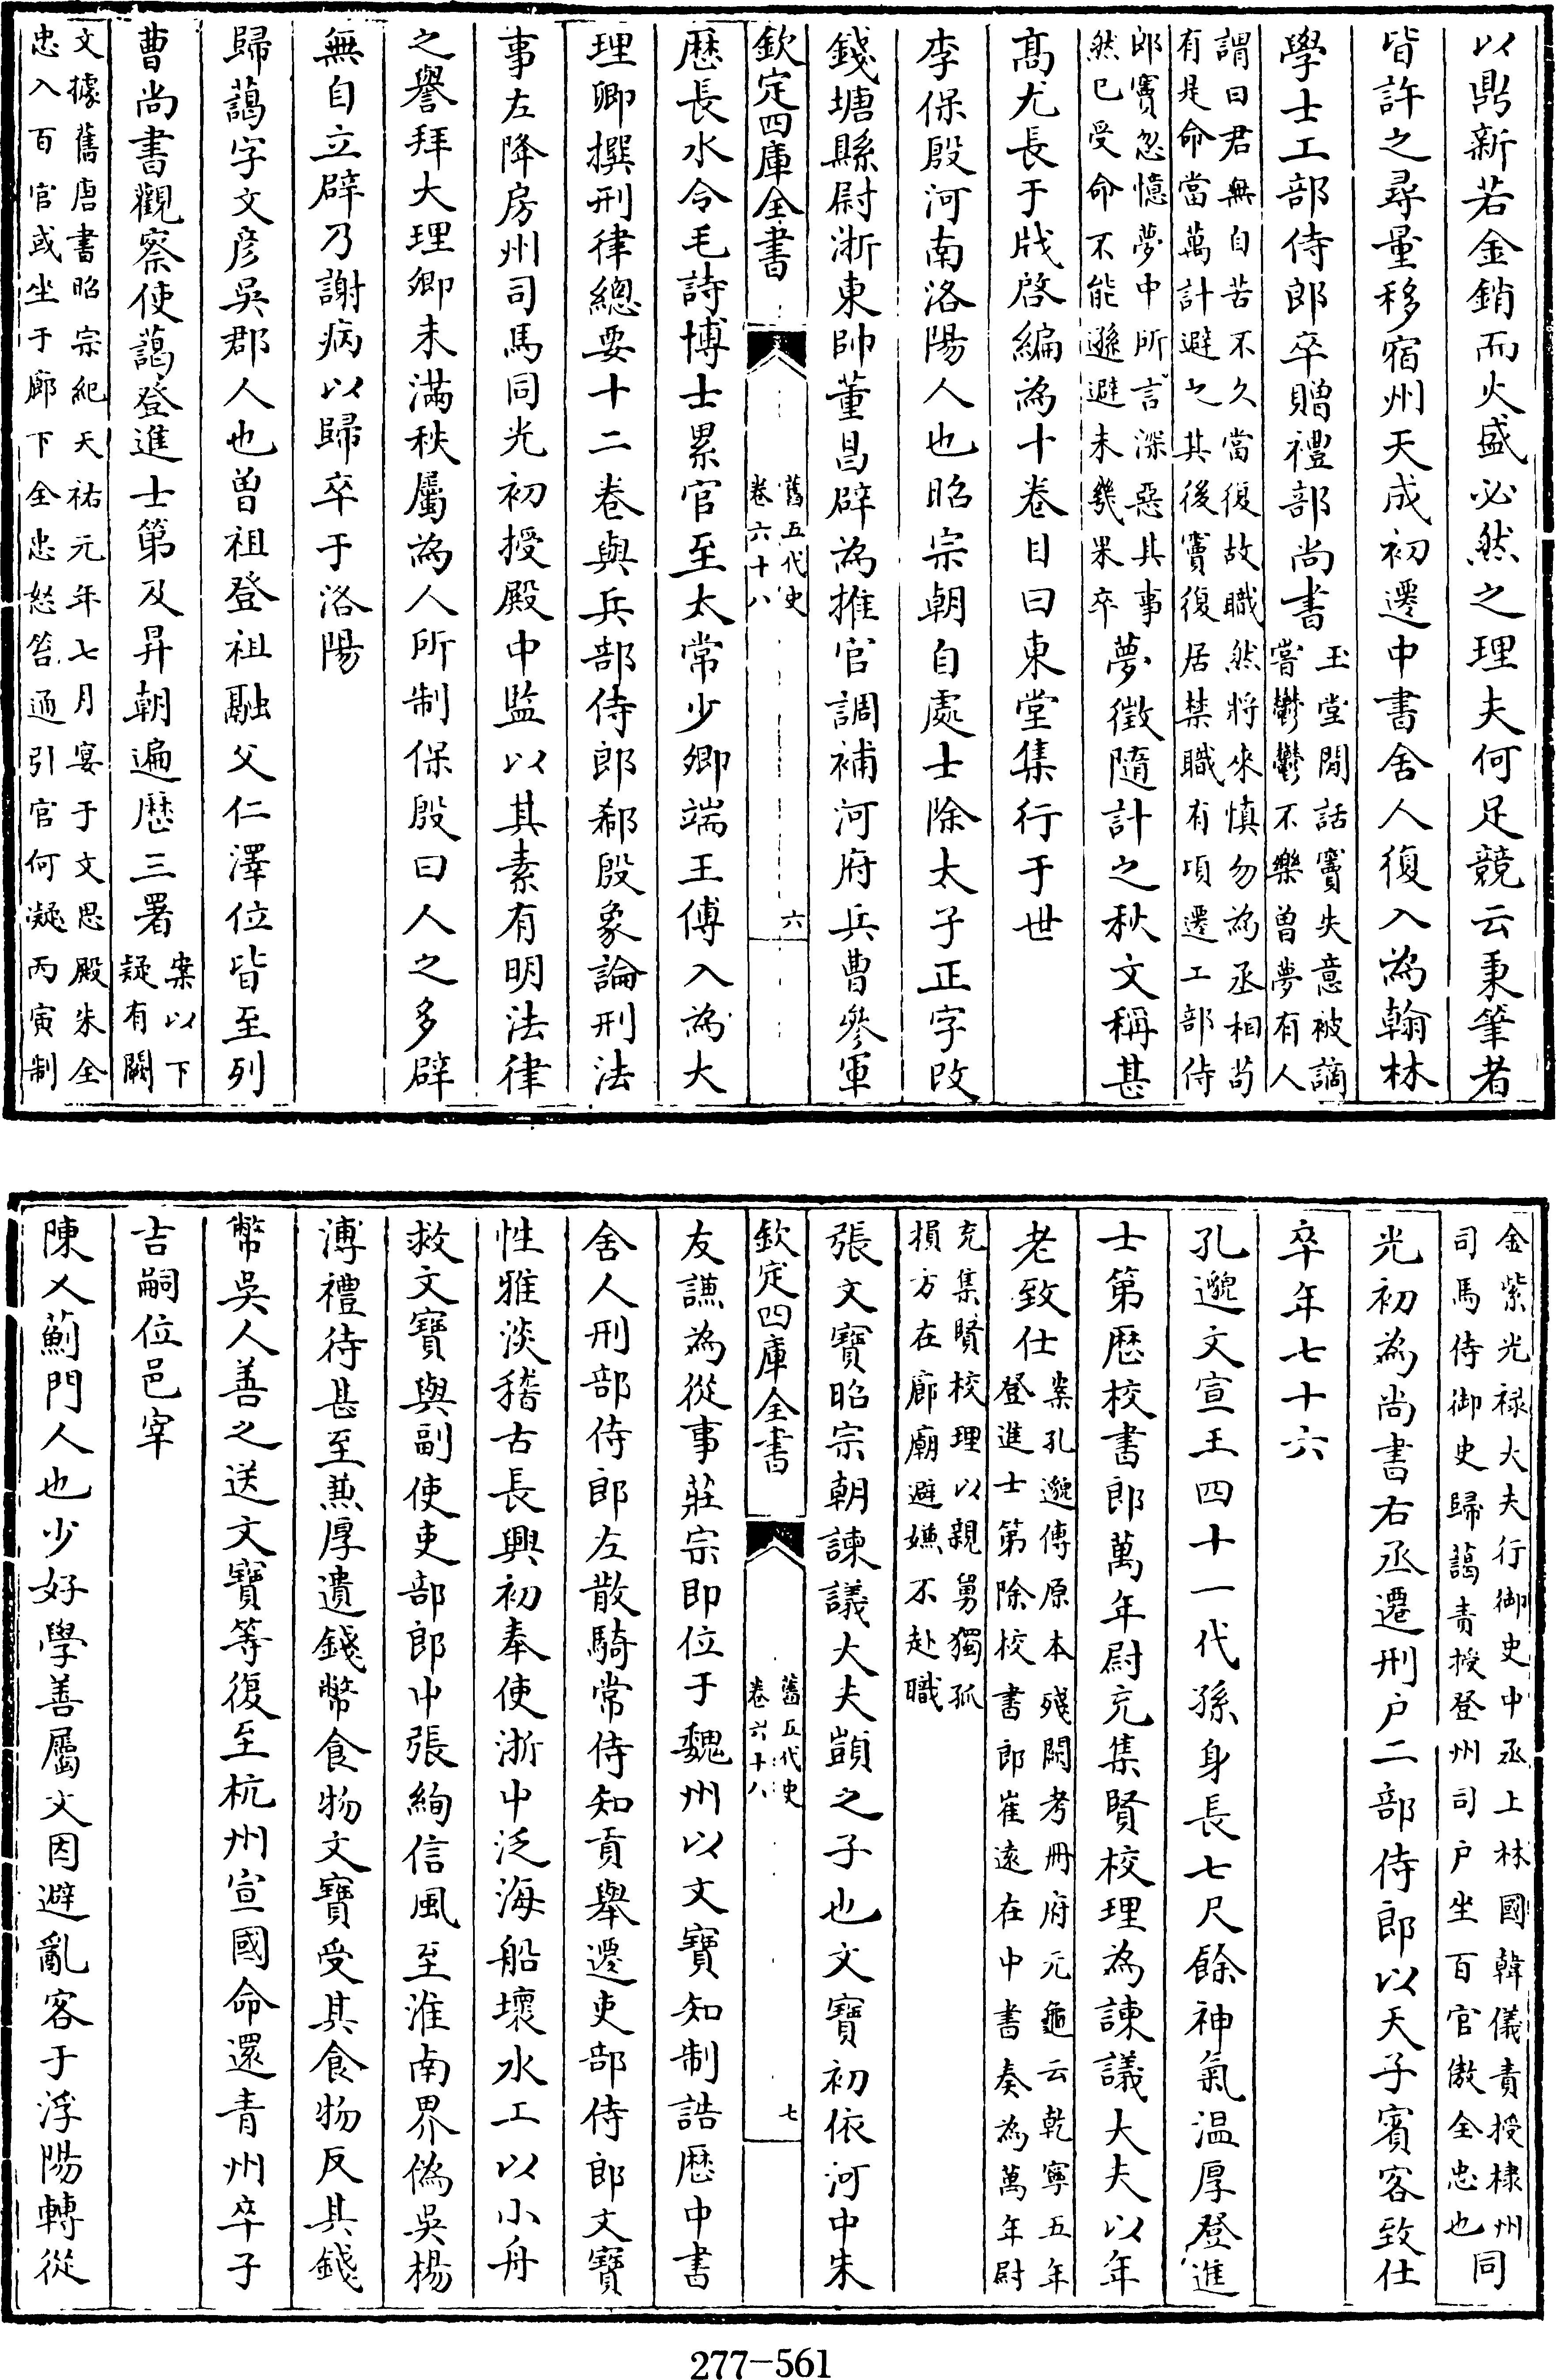 以鼎新若金銷而火盛必然之理夫何足競云秉筆者
皆許之尋量移宿州天成初遷中書舍人復入為翰林
學士工部侍郎卒贈禮部尚書
玉堂閒話竇失意被謫
嘗鬱鬱不樂曾夢有人
謂曰君無自苦不久當復故職然將來慎勿為丞相苟
有是命當萬計避之其後竇復居禁職有頃遷工部侍
郎竇忽憶夢中所言深惡其事
然已受命不能遜避未幾果卒
夢徵隨計之秋文稱甚
高尤長于牋啓編為十卷目曰東堂集行于世
李保殷河南洛陽人也昭宗朝自處士除太子正字改
錢塘縣尉浙東帥董昌辟為推官調補河府兵曹參軍
欽定四庫全書
舊五代史
卷六十八
六
歷長水令毛詩博士累官至太常少卿端王傅入為大
理卿撰刑律總要十二卷與兵部侍郎郗殷象論刑法
事左降房州司馬同光初授殿中監以其素有明法律
之譽拜大理卿未滿秩屬為人所制保殷曰人之多辟
無自立辟乃謝病以歸卒于洛陽
歸藹字文彥吳郡人也曾祖登祖融父仁澤位皆至列
曹尚書觀察使藹登進士第及昇朝遍歷三署
案以下
疑有闕
文據舊唐書昭宗紀天祐元年七月宴于文思殿朱全
忠入百官或坐于廊下全忠怒笞通引官何凝丙寅制
金紫光祿大夫行御史中丞上柱國韓儀責授棣州
司馬侍御史歸藹責授登州司戶坐百官傲全忠也
同
光初為尚書右丞遷刑戶二部侍郎以天子賓客致仕
卒年七十六
孔邈文宣王四十一代孫身長七尺餘神氣溫厚登進
士第歷校書郎萬年尉充集賢校理為諫議大夫以年
老致仕
案孔邈傳原本殘闕考冊府元龜云乾寧五年
登進士第除校書郎崔遠在中書奏為萬年尉
充集賢校理以親舅獨孤
損方在廊廟避嫌不赴職
張文寶昭宗朝諫議大夫顗之子也文寶初依河中朱
欽定四庫全書
舊五代史
卷六十八
七
友謙為從事莊宗即位于魏州以文寶知制誥歷中書
舍人刑部侍郎左散騎常侍知貢舉遷吏部侍郎文寶
性雅淡稽古長興初奉使浙中泛海船壞水工以小舟
救文寶與副使吏部郎中張絢信風至淮南界偽吳楊
溥禮待甚至兼厚遺錢幣食物文寶受其食物反其錢
幣吳人善之送文寶等復至杭州宣國命還青州卒子
吉嗣位邑宰
陳乂薊門人也少好學善屬文因避亂客于浮陽轉從
277-561